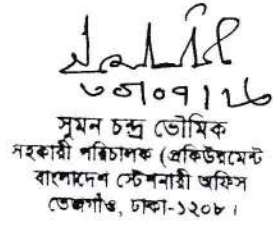 সুমন চন্দ্র ভৌমিক
সহকারী পরিচালক (প্রকিউরমেন্ট
বাংলাদেশ স্টেশনারী অফিস
তেজগাঁও, ঢাকা-১২০৮।